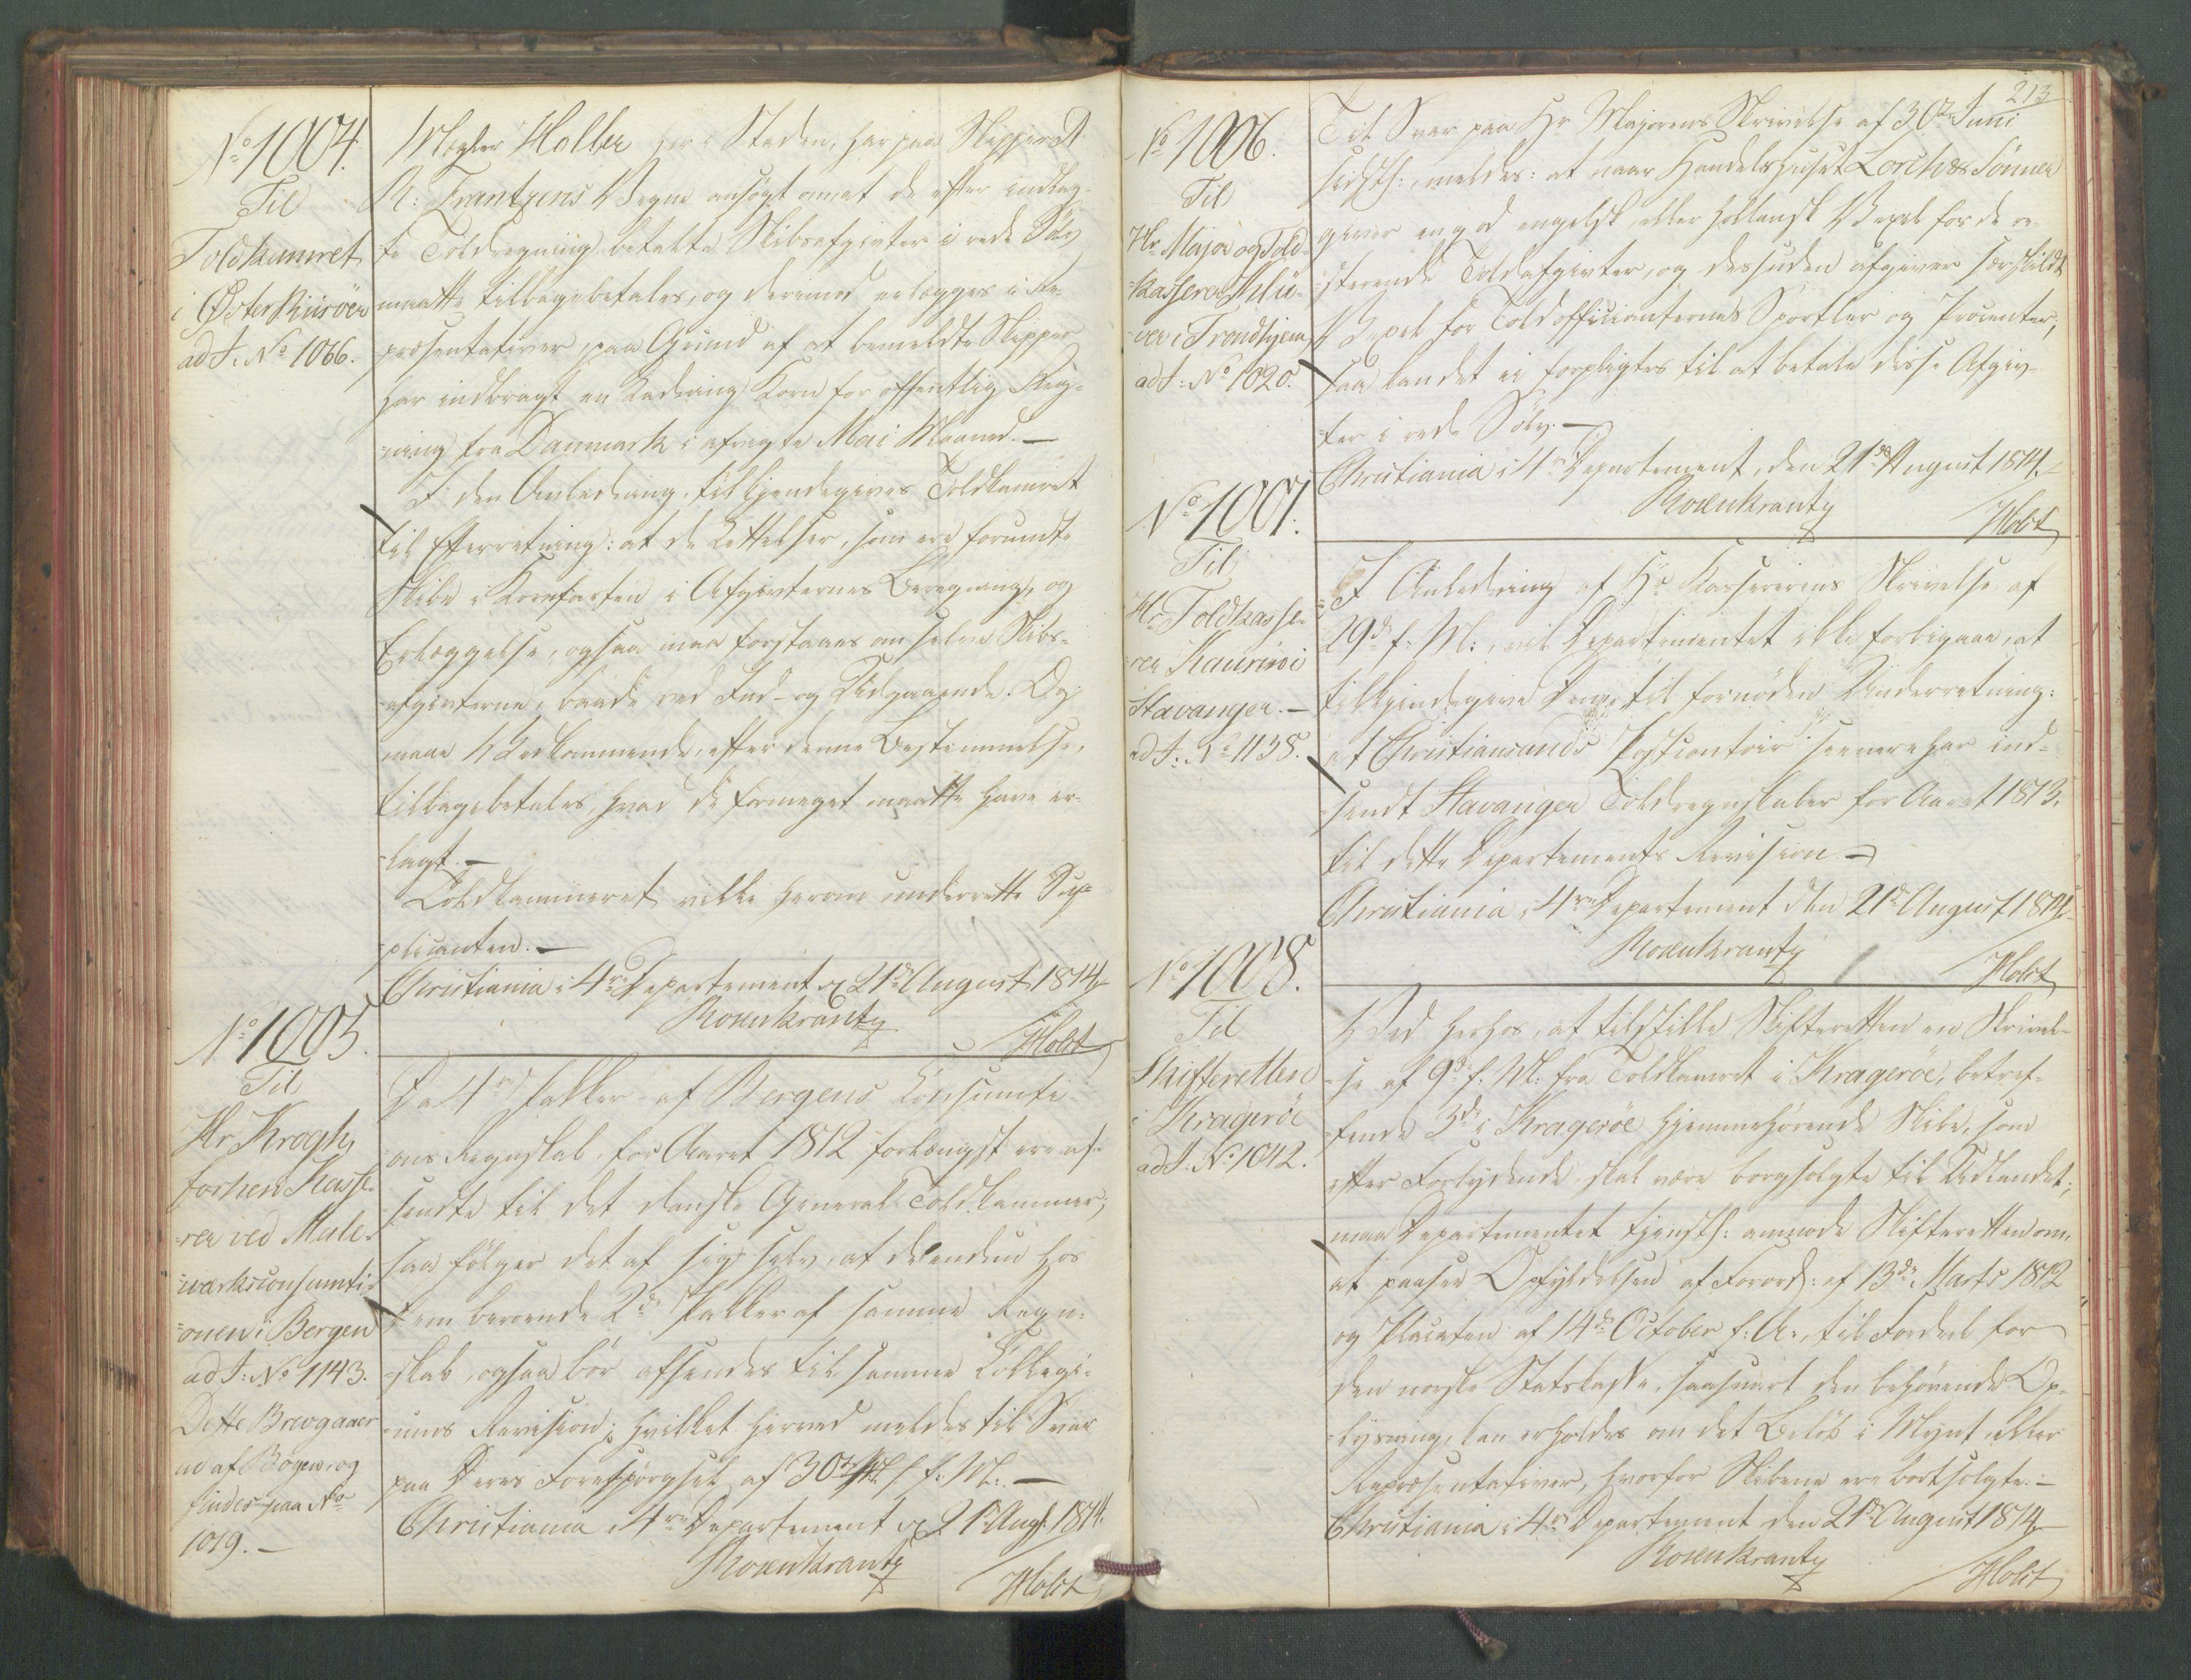 No 1004.
Til
Toldkamret
i Øster Riisöer
ad J. No 1066.
Mægler Holler her i Staden, har paa Skipper A.
R: Frantzens Vegne ansögt om at de efter indlag-
te Toldregning betalte Skibsafgivter i rede Sölv
maatte tilbagebetales, og derimod erlægges i Re-
præsentativer, paa Grund af at bemeldte Skipper
har indbragt en Ladning Korn for offentlig Reg-
ning fra Danmark i afvigte Mai Maaned. —
I den Anledning tilkjendegives Toldkamret
til Efterretning: at de Lettelser, som ere forundte
Skibe i Kornfarten i Afgivternes Beregning, og
Erlæggelse, ogsaa maa forstaaes om selve Skibs-
afgivterne, baade ved Ind- og Udgaaende. Og
maae Vedkommende, efter denne Bestemmelse,
tilbagebetales, hvad de formeget maatte have er-
lagt. —
Toldkammeret ville herom underrette Sup-
plicanten. —
Christiania i 4re Departement d. 21d August 1814.
Rosenkrantz
Holst
No 1005.
Til
Hr. Krogh,
forhen Kasse-
rer ved Male-
værksconsumti-
onen i Bergen
ad J: No 1143.
Dette Brev gaaer
ud af Bogen, og
findes paa No
1019. —
Da 4re Pakker af Bergens Consumti-
ons Regnskab for Aaret 1812 forlængst ere af-
sendte til det danske General Toldkammer;
saa fölger det af sig selv, at de endnu hos
Dem beroende 2de Pakker af samme Regn-
skab, ogsaa bör afsendes til samme Collegi-
ums Revision; hvilket herved meldes til Svar
paa Deres Forespörgsel af 30te f. M. —
Christiania i 4re Departement d. 21d Augt. 1814.
Rosenkrantz
Holst
213
No 1006.
Til
Hr. Major og Told-
kasserer Klü-
ver i Trondhjem
ad J: No 1020.
Til Svar paa Hr Majorens Skrivelse af 30te Juni
sidstl:, meldes: at naar Handelshuset Lorch &s Sönner
giver en god engelsk eller hollansk Vexel for de re-
sterende Toldafgivter, og desuden afgiver særskildt
Vexel for Toldofficianternes Sportler og Procenter,
saa kan det ei forpligtes til at betale disse Afgiv-
ter i rede Sölv. —
Christiania i 4re Departement, den 21de August 1814.
Rosenkrantz
Holst
No 1007.
Til
Hr. Toldkasse-
rer Kaurin i
Stavanger. —
ad J: No 1138.
I Anledning af Hr. Kassererens Skrivelse af
29d f. M:, vil Departementet ikke forbigaae, at
tilkjendegive Dem til fornöden Underretning:
at Christiansands Postcontoir seenere har ind-
sendt Stavanger Toldregnskaber for Aaret 1813,
til dette Departements Revision. —
Christiania i 4re Departement den 21d August 1814.
Rosenkrantz
Holst
No 1008.
Til
Skifteretten
i Krageröe
ad J: No 1042.
Ved herhos, at tilstille Skifteretten en Skrivel-
se af 9d f. M. fra Toldkamret i Krageröe, betref-
fende 3de i Krageröe hjemmehörende Skibe, som
efter Forlydende skal være bortsolgte til Udlandet;
maa Departementet tjenstl: anmode Skifteretten om,
at paasee Opfyldelsen af Forord: af 13de Marts 1812
og Placaten af 14de October f: A:, til Fordeel for
den norske Statskasse, saasnart den behörende Op-
lysning kan erholdes om det Belöb i Mynt eller
Repræsentativer, hvorfor Skibene ere bortsolgte. —
Christiania i 4re Departement den 21d August 1814
Rosenkrantz
Holst